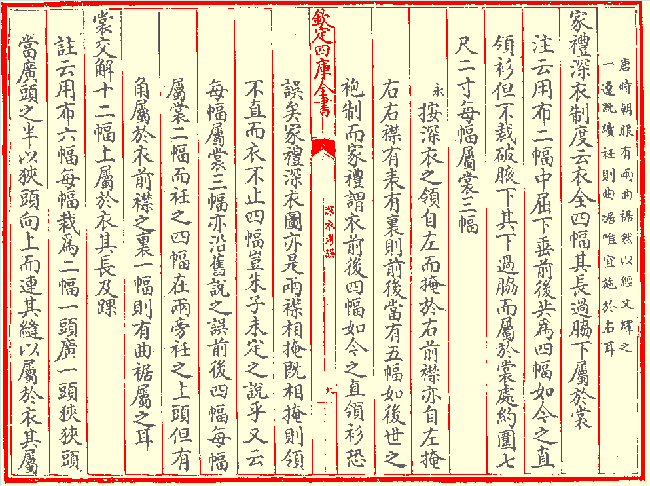 唐時朝服有兩曲裾然以經文釋之
一邊既續衽則曲裾唯宜施於右耳
家禮深衣制度云衣全四幅其長過脇下屬於裳
注云用布二幅中屈下垂前後共為四幅如今之直
領衫但不裁破腋下其下過脇而屬於裳處約圍七
尺二寸每幅屬裳三幅
永按深衣之領自左而掩於右前襟亦自左掩
右右襟有表有裏則前後當有五幅如後世之
袍制而家禮謂衣前後四幅如今之直領衫恐
欽定四庫全書
深衣考誤
九
誤矣家禮深衣圖亦是兩襟相掩既相掩則領
不直而衣不止四幅豈朱子未定之說乎又云
每幅屬裳三幅亦沿舊說之誤前後四幅每幅
屬裳二幅而衽之四幅在兩旁衽之上頭但有
角屬於衣前襟之裏一幅則有曲裾屬之耳
裳交解十二幅上屬於衣其長及踝
註云用布六幅每幅裁為二幅一頭廣一頭狹狹頭
當廣頭之半以狹頭向上而連其縫以屬於衣其屬